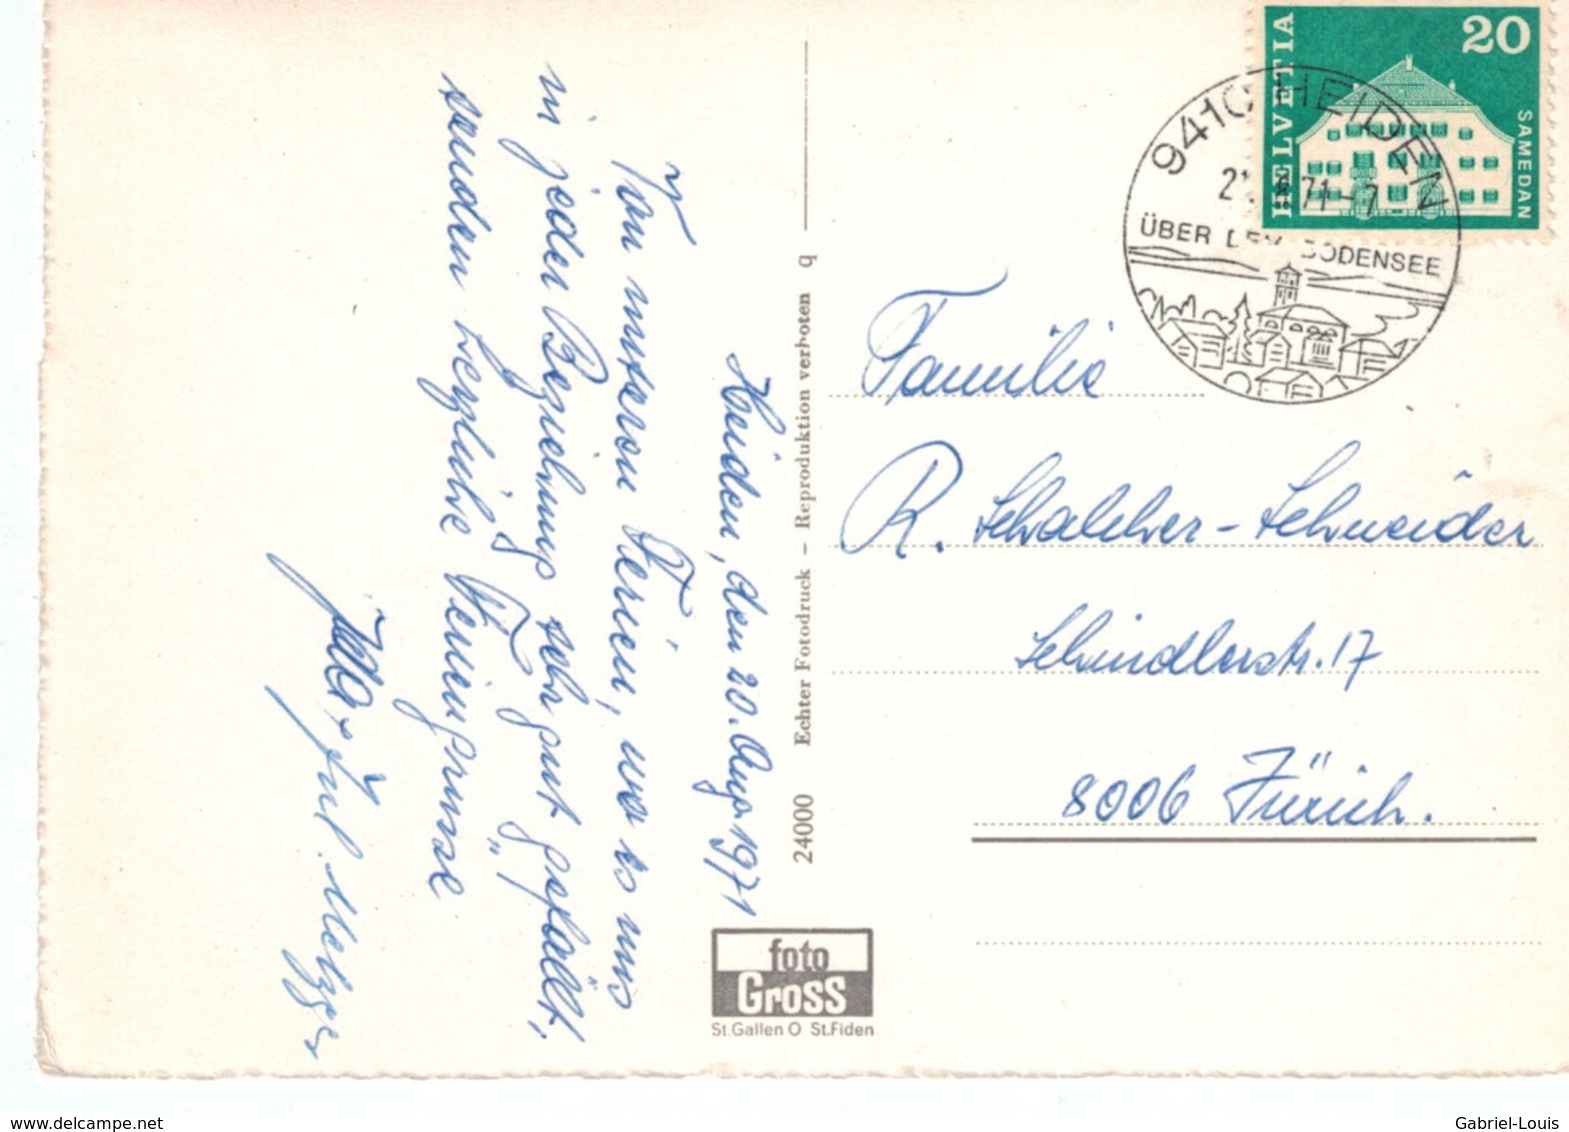 Heiden, den 20. Aug. 1971
Von unseren Ferien, wo es uns
in jeder Beziehung sehr gut gefällt,
senden herzliche Feriengrüsse
Metzger
24000 Echter Fotodruck – Reproduktion verboten q
foto
Gross
St.Gallen O St.Fiden
HELVETIA
20
SAMEDAN
9410 HEIDEN
71-7
ÜBER DEM BODENSEE
Familie
R. Schalcher-Schneider
Schindlerstr. 17
8006 Zürich.
www.delcampe.net
Gabriel-Louis